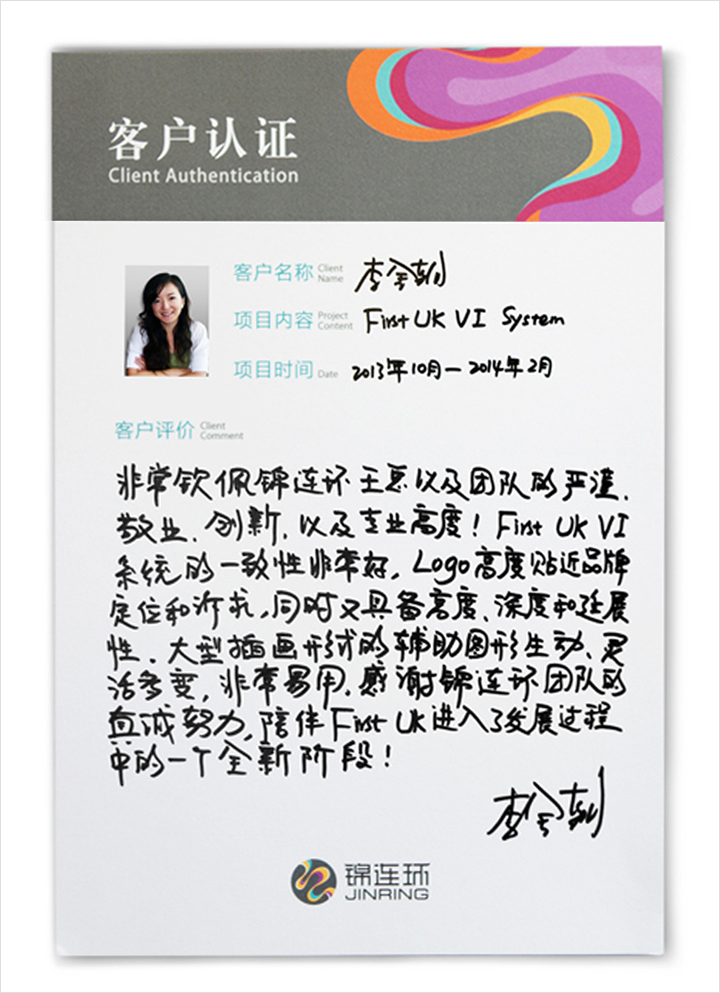 客户认证
Client Authentication
客户名称 Client Name 李全朝
项目内容 Project Content First UK VI System
项目时间 Date 2013年10月—2014年2月
客户评价 Client Comment
非常钦佩锦连环王总以及团队的严谨、
敬业、创新,以及专业高度!First UK VI
系统的一致性非常好,Logo高度贴近品牌
定位和诉求,同时又具备高度、深度和延展
性、大型插画形式的辅助图形生动、灵
活多变,非常易用.感谢锦连环团队的
真诚努力,陪伴First UK进入了发展过程
中的一个全新阶段!
李全朝
锦连环
JINRING